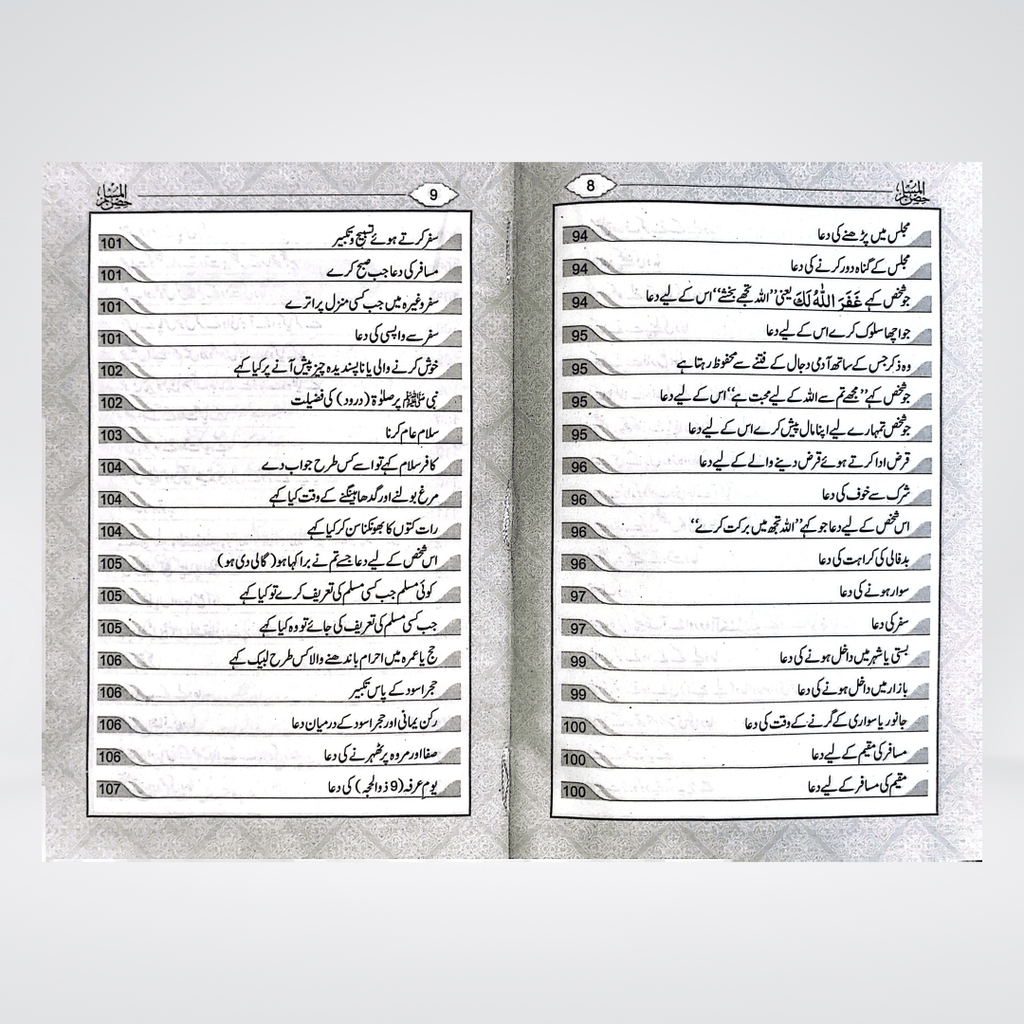 حصن المسلم
8
مجلس میں پڑھنے کی دعا 94
مجلس کے گناہ دور کرنے کی دعا 94
جو شخص کہے غَفَرَ اللّٰهُ لَكَ یعنی ’’اللہ تجھے بخشے‘‘ اس کے لیے دعا 94
جو اچھا سلوک کرے اس کے لیے دعا 95
وہ ذکر جس کے ساتھ آدمی دجال کے فتنے سے محفوظ رہتا ہے 95
جو شخص کہے ’’مجھے تم سے اللہ کے لیے محبت ہے‘‘ اس کے لیے دعا 95
جو شخص تمہارے لیے اپنا مال پیش کرے اس کے لیے دعا 95
قرض ادا کرتے ہوئے قرض دینے والے کے لیے دعا 96
شرک سے خوف کی دعا 96
اس شخص کے لیے دعا جو کہے ’’اللہ تجھ میں برکت کرے‘‘ 96
بدفالی کی کراہت کی دعا 96
سوار ہونے کی دعا 97
سفر کی دعا 97
بستی یا شہر میں داخل ہونے کی دعا 99
بازار میں داخل ہونے کی دعا 99
جانور یا سواری کے گرنے کے وقت کی دعا 100
مسافر کی مقیم کے لیے دعا 100
مقیم کی مسافر کے لیے دعا 100
9
حصن المسلم
سفر کرتے ہوئے تسبیح و تکبیر 101
مسافر کی دعا جب صبح کرے 101
سفر وغیرہ میں جب کسی منزل پر اترے 101
سفر سے واپسی کی دعا 101
خوش کرنے والی یا ناپسندیدہ چیز پیش آنے پر کیا کہے 102
نبی ﷺ پر صلوٰۃ (درود) کی فضیلت 102
سلام عام کرنا 103
کافر سلام کہے تو اسے کس طرح جواب دے 104
مرغ بولنے اور گدھا ہینگنے کے وقت کیا کہے 104
رات کتوں کا بھونکنا سن کر کیا کہے 104
اس شخص کے لیے دعا جسے تم نے برا کہا ہو (گالی دی ہو) 105
کوئی مسلم جب کسی مسلم کی تعریف کرے تو کیا کہے 105
جب کسی مسلم کی تعریف کی جائے تو وہ کیا کہے 105
حج یا عمرہ میں احرام باندھنے والا کس طرح لبیک کہے 106
حجر اسود کے پاس تکبیر 106
رکن یمانی اور حجر اسود کے درمیان دعا 106
صفا اور مروہ پر ٹھہرنے کی دعا 106
یومِ عرفہ (9 ذوالحجہ) کی دعا 107